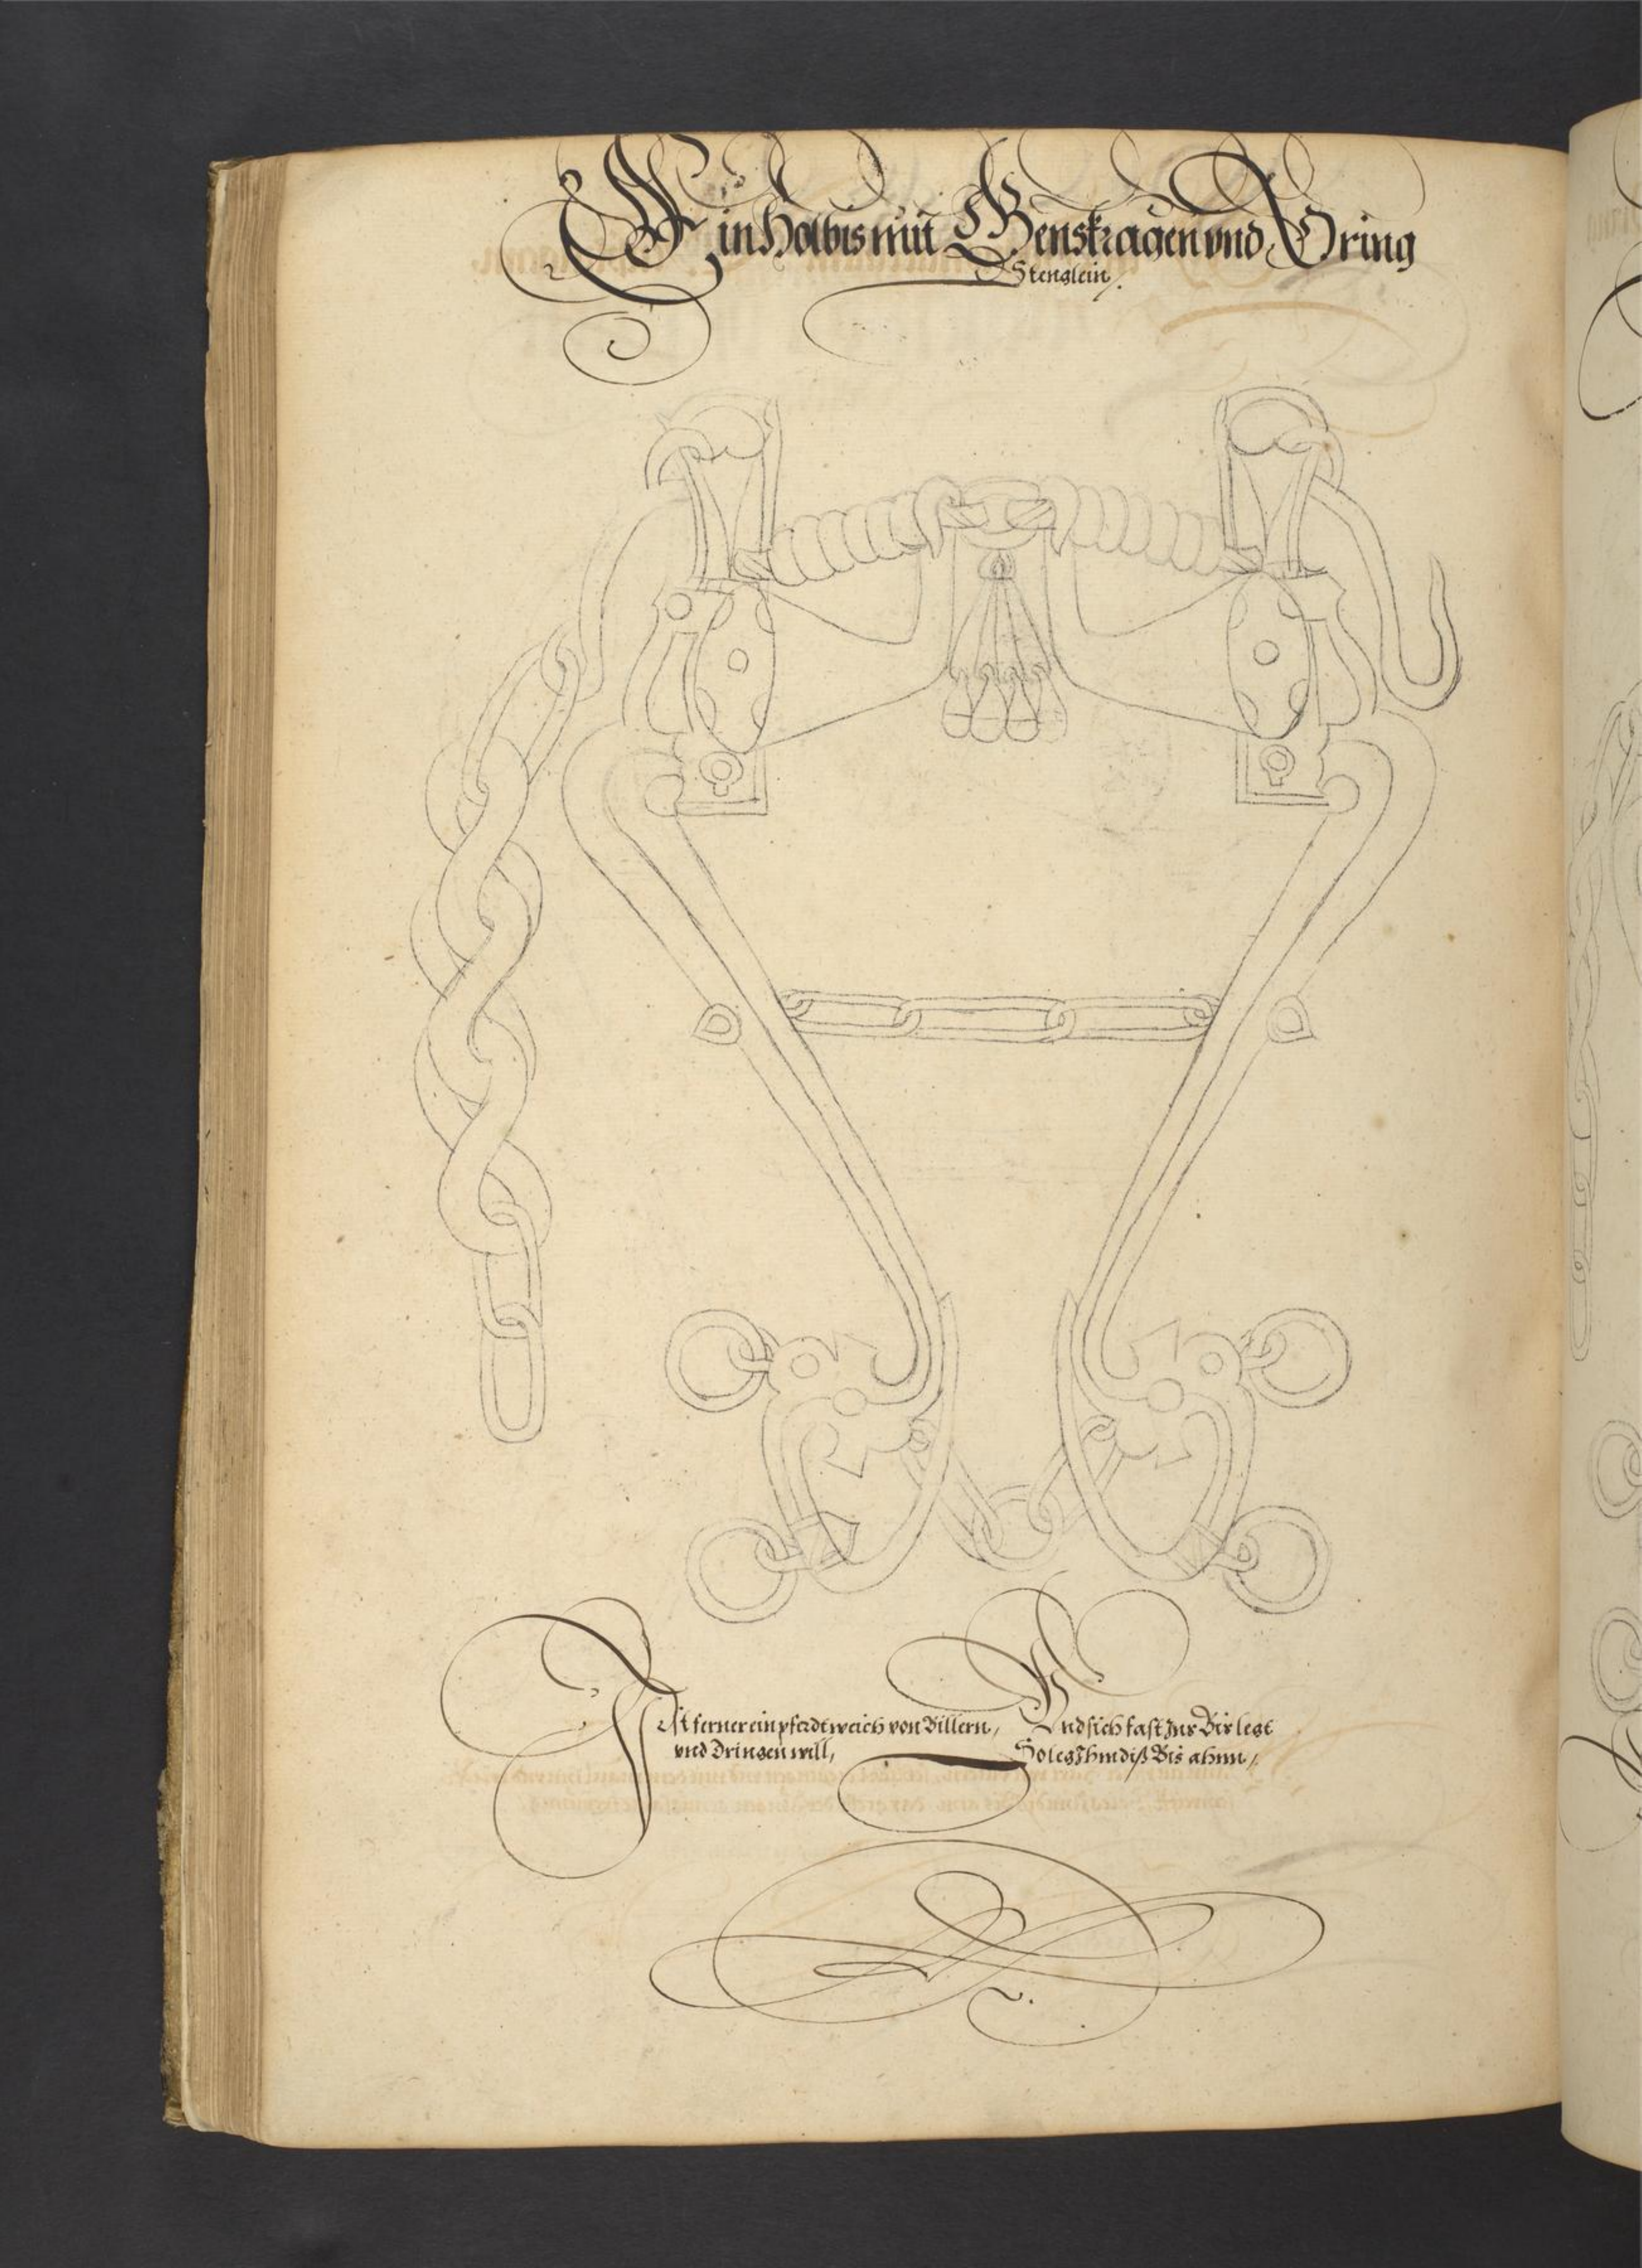 Ein Holbis mit Genskragen vnd Oring
Stenglein /.
Ist ferner ein pferdt weich von Billern /
vnd Dringen will,
Vnd sich fast zur Bir legt
So leg Ihm diß Bis ahnn /.